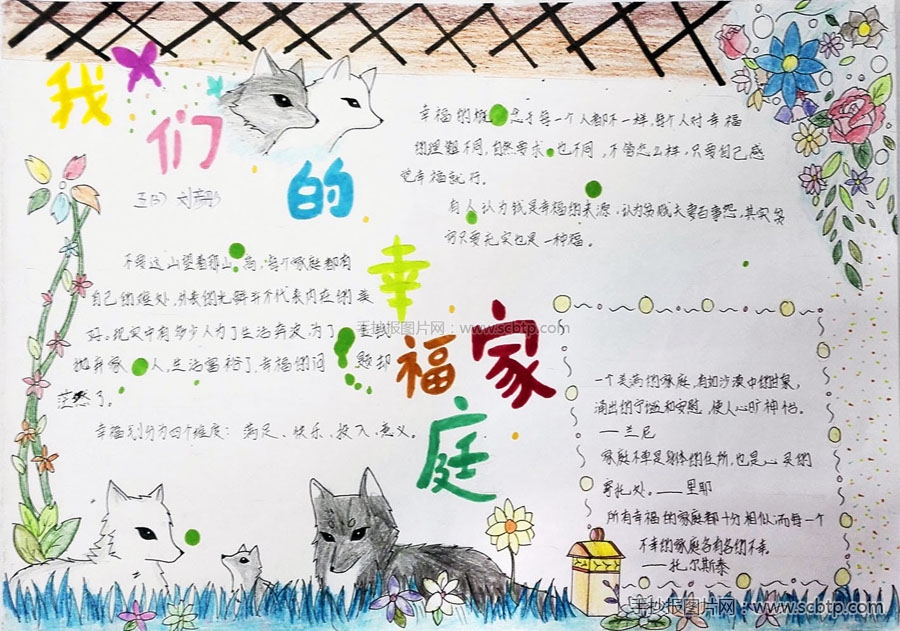 我们的幸福家庭
三(3) 刘
幸福的概念于每一个人都不一样,每个人对幸福
的理解不同,自然要求也不同,不管怎么样,只要自己感
觉幸福就行。
有人认为钱是幸福的来源,认为贫贱夫妻百事哀,其实贫
穷只要充实也是一种福。
不要这山望着那山高,每个家庭都有
自己的难处,外表的光鲜并不代表内在的美
好。现实中有多少人为了生活奔波,为了钱
抛弃家人,生活富裕了,幸福的问题却
茫然了。
幸福划分为四个维度:满足、快乐、投入、意义。
手抄报图片网:www.scbtp.com
一个美满的家庭,有如沙漠中的甘泉,
涌出的宁谧和安慰,使人心旷神怡。
——兰尼
家庭不单是身体的住所,也是心灵的
寄托处。——里耶
所有幸福的家庭都十分相似;而每一个
不幸的家庭各有各的不幸。
——托尔斯泰
手抄报图片网:www.scbtp.com